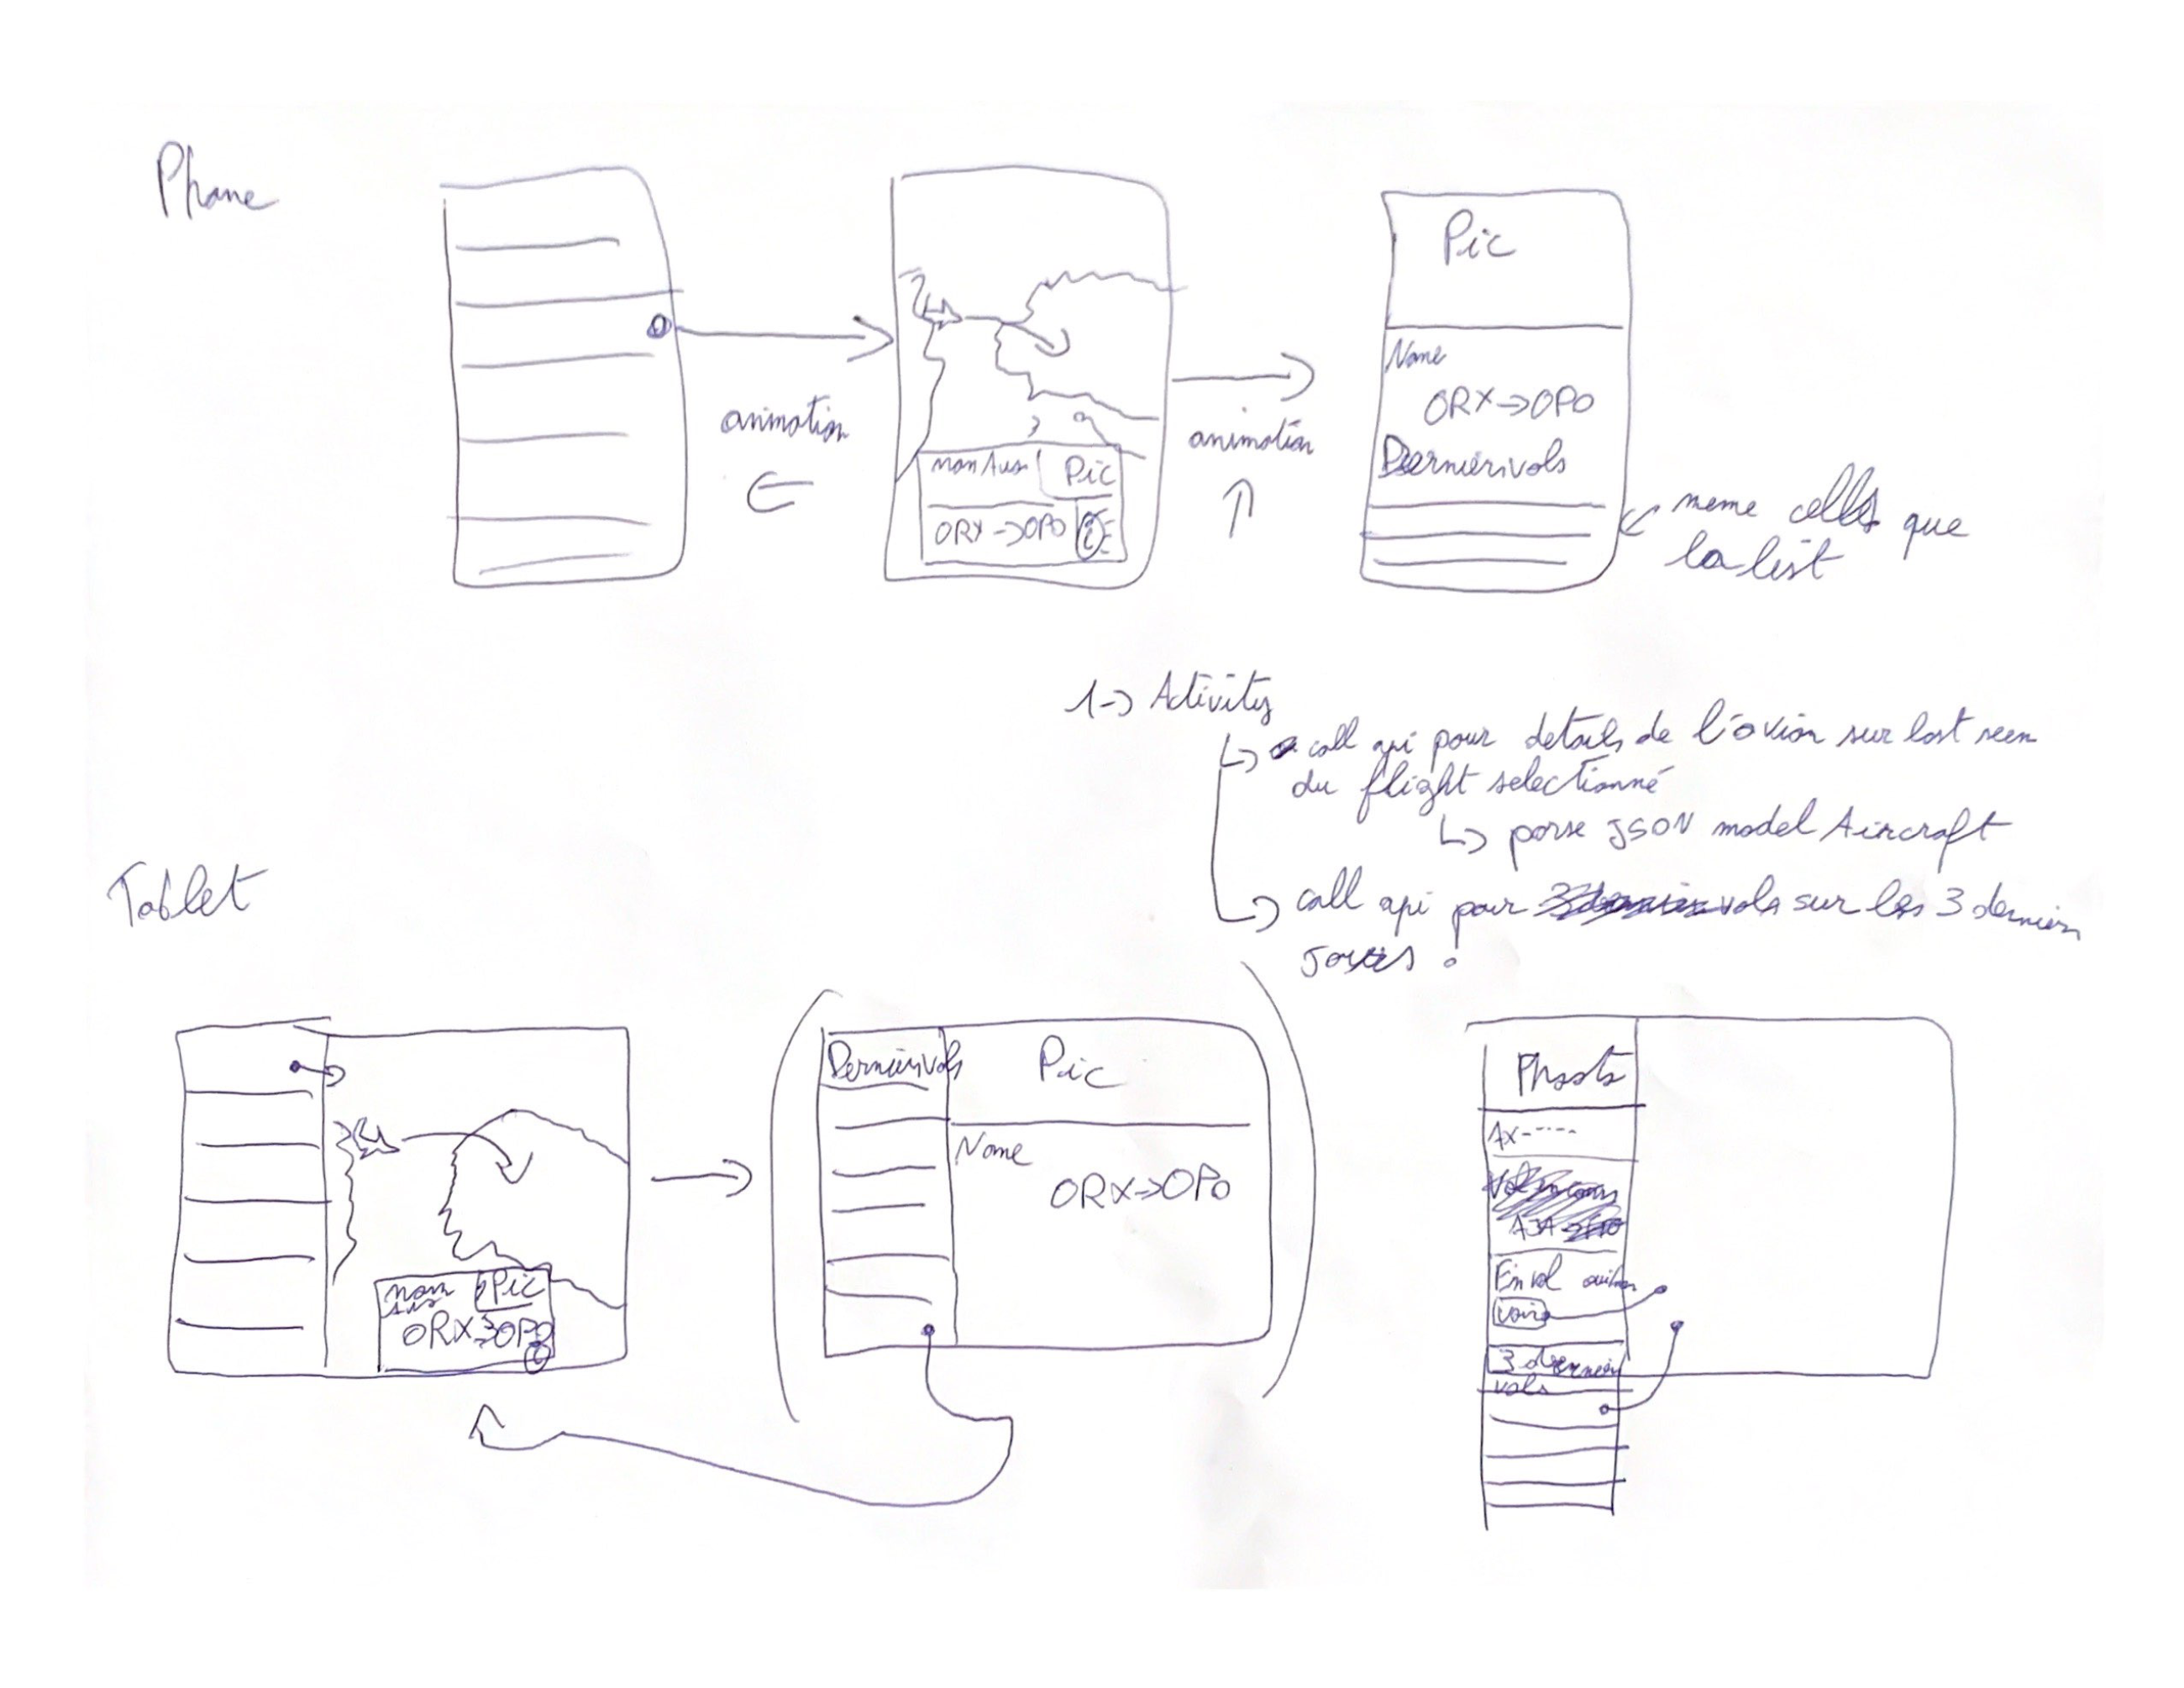 Phone
animation
Pic
ORY->OPO
animation
Pic
Name
ORX->OPO
Derniers vols
meme cells que
la list
1-> Activity
call api pour details de l'avion sur last seen
du flight selectionné
parse JSON model Aircraft
call api pour vols sur les 3 dernier
jours !
Tablet
nom
Pic
ORX->OPO
Derniers vols
Pic
Name
ORX->OPO
Photo
AX-----
En vol
voir
3 dernier
vols